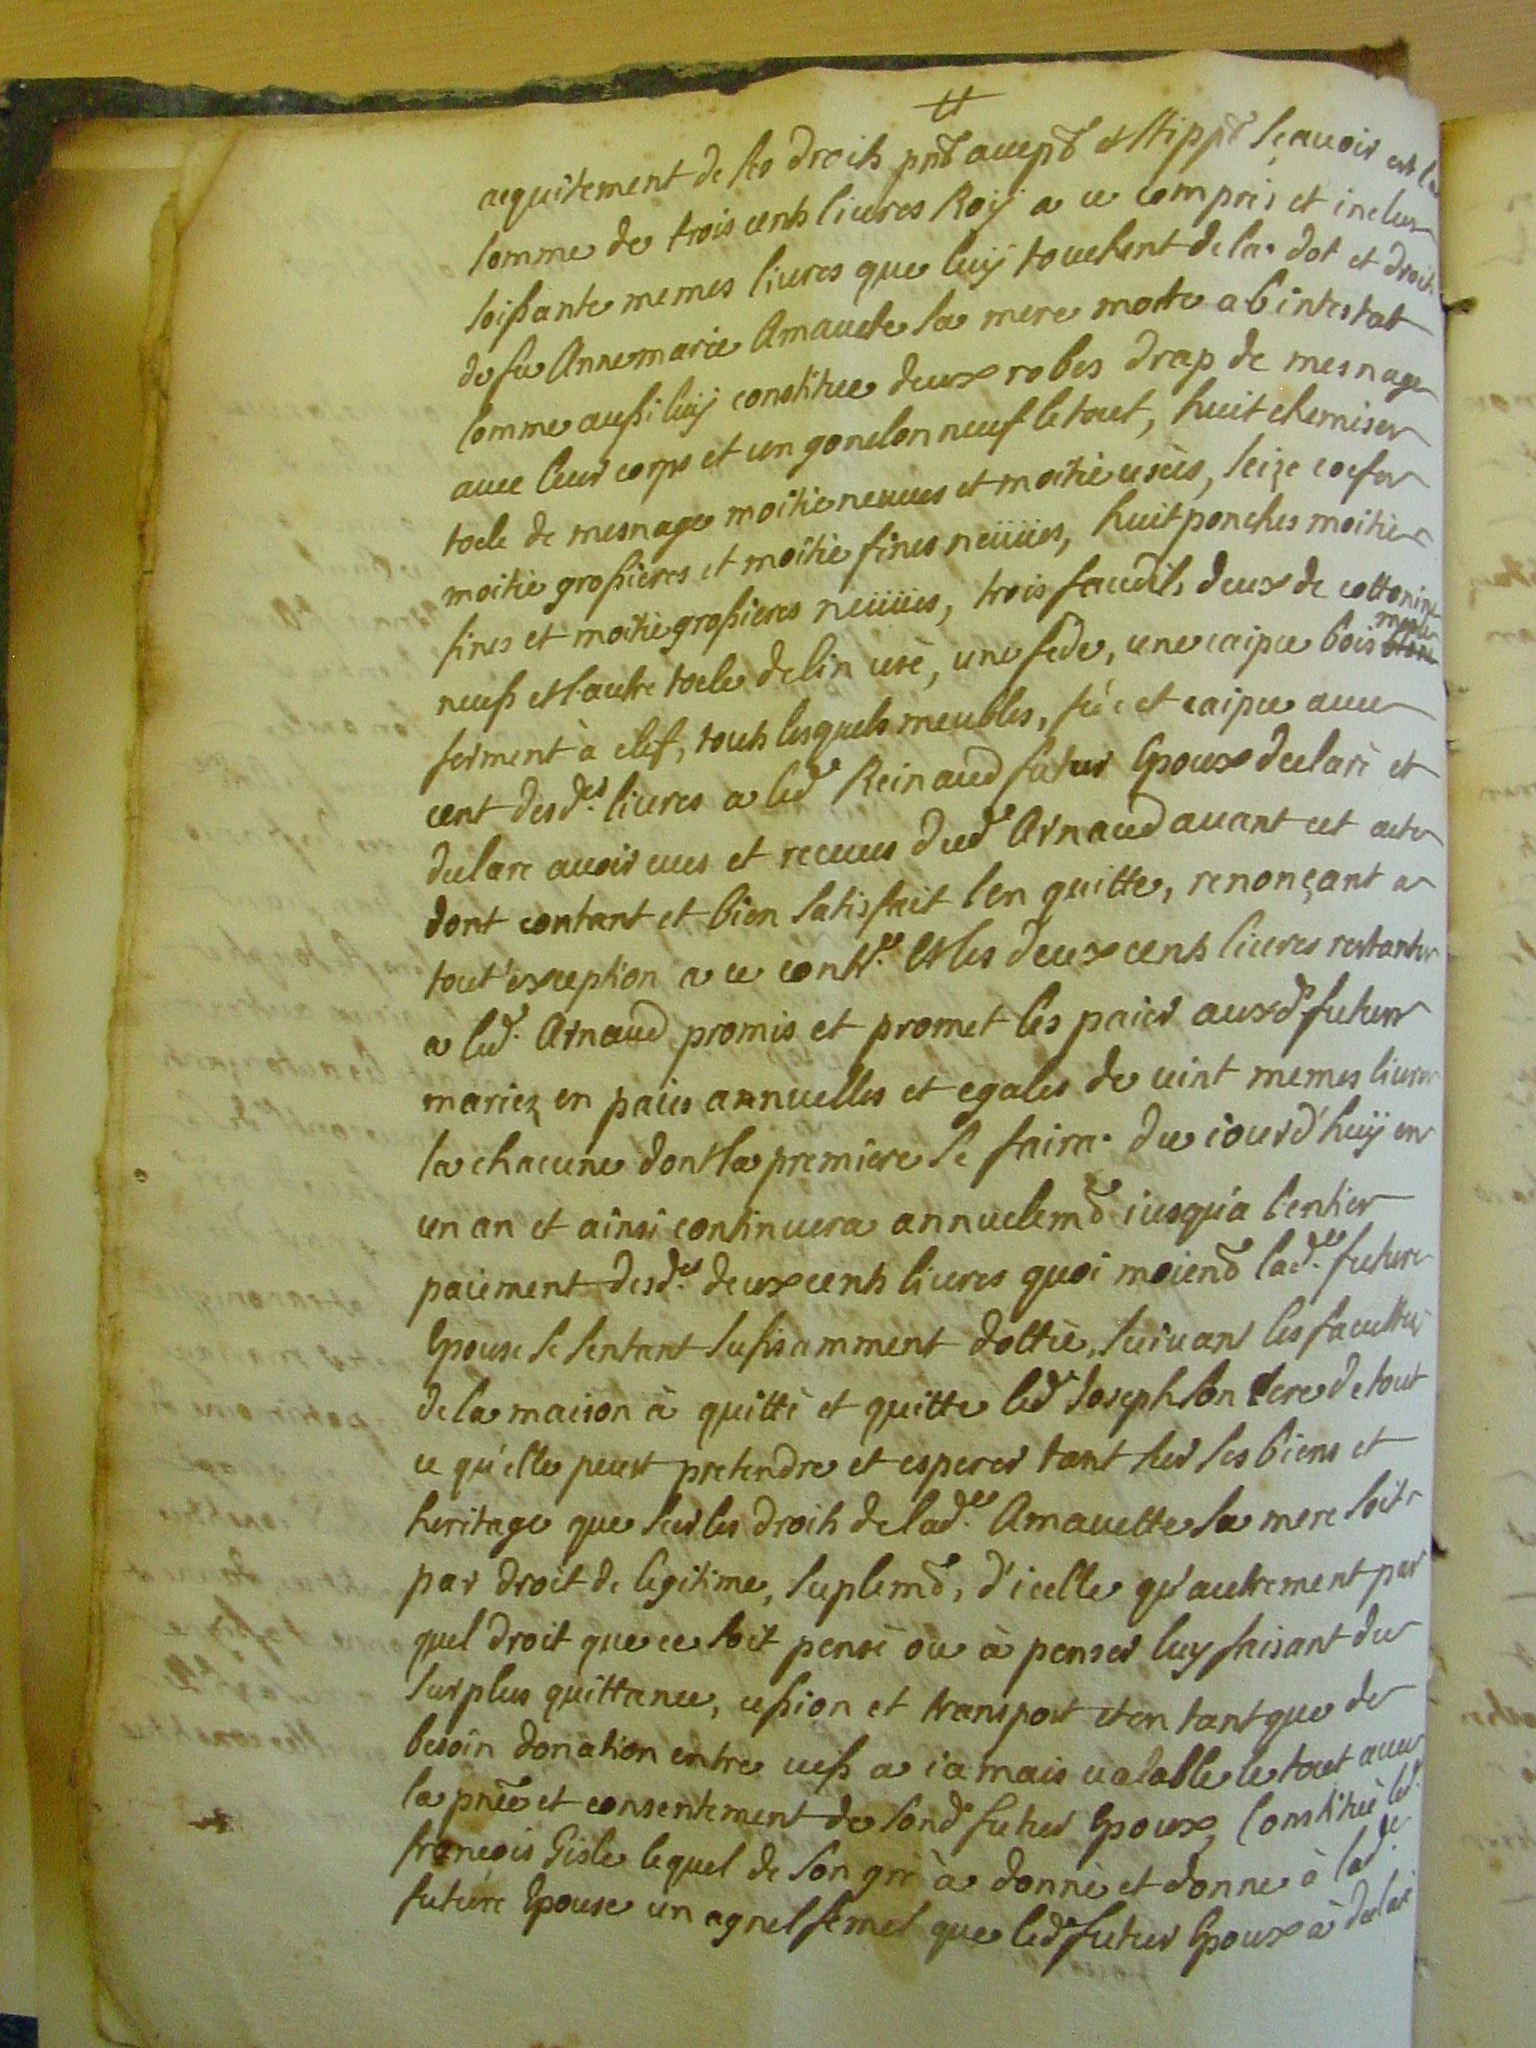 acquitement de ses droits pnt accept et stippt sçavoir est la
somme de trois cents livres Roy a ce compris et inclus
soissante memes livres que luy touchent de la dot et droits
de fu Annemarie Amavete sa mere morte abintestat
comme aussi luy constitue deux robes drap de mesnage
avec leur corps et un gonelon neuf le tout, huit chemises
toele de mesnage moitie neuves et moitie usées, seize coefes
moitie grossieres et moitie fines neuves, huit ponches moitie
fines et moitie grossieres neuves, trois faudils deux de cottonine
neufs et l'autre toele de lin usé, une fede, une caisse bois
ferment à clef, touts lesquels meubles, féé et caisse avec
cent desd.es livres a led. Reinaud futur Epoux declaré et
declare avoir eues et receues dud. Arnaud avant cet acte
dont contant et bien satisfait l'en quitte, renonçant a
tout'exception a ce contr.e Et les deux cents livres restantes
a led. Arnaud promis et promet les paier auxd. futurs
mariez en paies annuelles et egales de vint memes livres
la chacune dont la premiere se faira du iourd'huy en
un an et ainsi continuera annuelemt iusqu'a l'entier
paiement desd.es deux cents livres quoi moient lad.e future
Epouse se sentant sufisamment dottée, suivant les facultés
de la maison à quitté et quitte led. Joseph son Pere de tout
ce qu'elle peut pretendre et esperer tant sur ses biens et
heritage que sur les droits de lad.e Amavette sa mere soit
par droit de legitime, suplemt, d'icelle qu'autrement par
quel droit que ce soit pensé ou à penser luy faisant du
surplus quittance, cession et transport et en tant que de
besoin donation entre vifs a iamais valable le tout avec
la pnce et consentement de sond. futur Epoux, Constitué led.
francois Gisle lequel de son gré à donné et donne à lad.e
future Epouse un agnel femel que led. futur Epoux à declaré